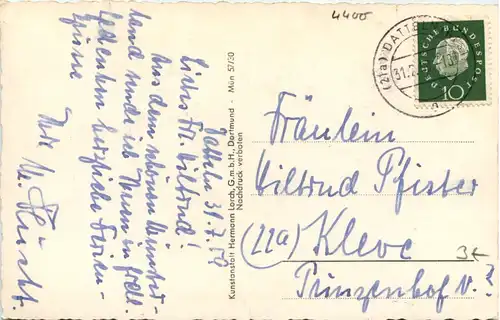 4400
(21a) DATTELN
31.
DEUTSCHE BUNDESPOST
10
Datteln 31.7.59
Liebes Frl. Wiltrud!
Aus dem schönen Münster-
land sende ich Ihnen in freudl.
Gedenken herzliche Ferien-
grüße
Ihr
Kunstanstalt Hermann Lorch, G.m.b.H., Dortmund - Mün 57/30
Nachdruck verboten
Fräulein
Wiltrud Pfister
(22a) Kleve
Prinzenhof